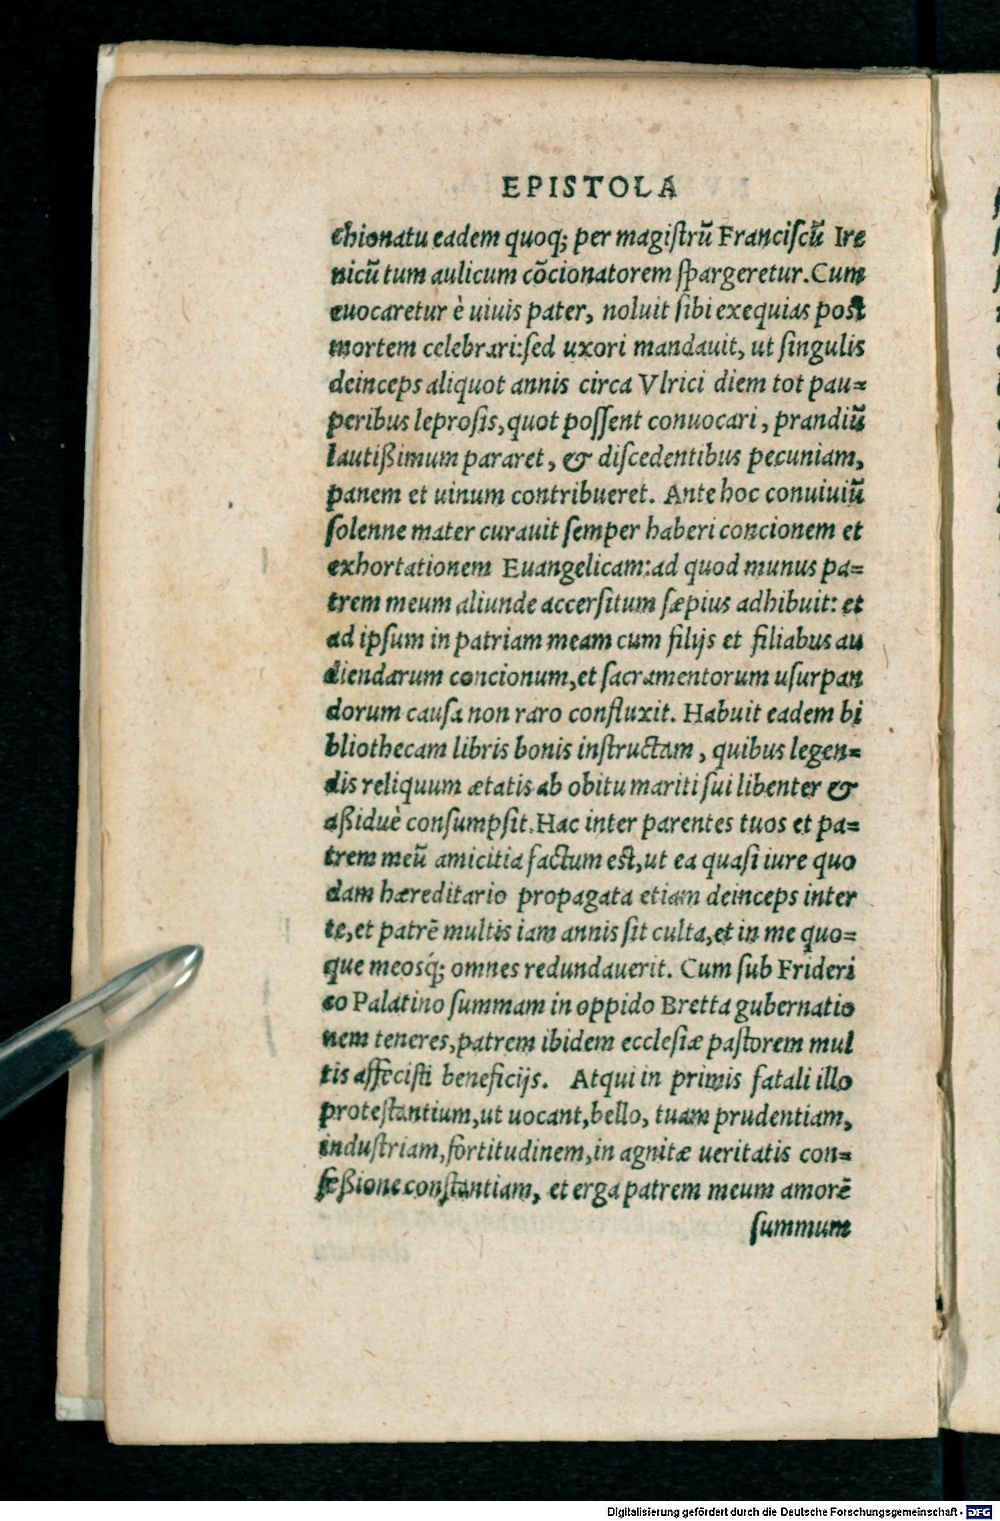 EPISTOLA
chionatu eadem quoq; per magiſtrũ Franciſcũ Ire
nicũ tum aulicum cõcionatorem ſpargeretur. Cum
euocaretur è uiuis pater, noluit ſibi exequias poſt
mortem celebrari: ſed uxori mandauit, ut ſingulis
deinceps aliquot annis circa Vlrici diem tot pau=
peribus leproſis, quot poſſent conuocari, prandiũ
lautißimum pararet, & diſcedentibus pecuniam,
panem et uinum contribueret. Ante hoc conuiuiũ
ſolenne mater curauit ſemper haberi concionem et
exhortationem Euangelicam: ad quod munus pa=
trem meum aliunde accerſitum ſæpius adhibuit: et
ad ipſum in patriam meam cum filijs et filiabus au
diendarum concionum, et ſacramentorum uſurpan
dorum cauſa non raro confluxit. Habuit eadem bi
bliothecam libris bonis inſtructam, quibus legen=
dis reliquum ætatis ab obitu mariti ſui libenter &
aßiduè conſumpſit. Hac inter parentes tuos et pa=
trem meũ amicitia factum eſt, ut ea quaſi iure quo
dam hæreditario propagata etiam deinceps inter
te, et patrẽ multis iam annis ſit culta, et in me quo=
que meosq́; omnes redundauerit. Cum ſub Frideri
co Palatino ſummam in oppido Bretta gubernatio
nem teneres, patrem ibidem eccleſiæ paſtorem mul
tis affeciſti beneficijs. Atqui in primis fatali illo
proteſtantium, ut uocant, bello, tuam prudentiam,
induſtriam, fortitudinem, in agnitæ ueritatis con=
feßione conſtantiam, et erga patrem meum amorẽ
ſummum
Digitalisierung gefördert durch die Deutsche Forschungsgemeinschaft - DFG